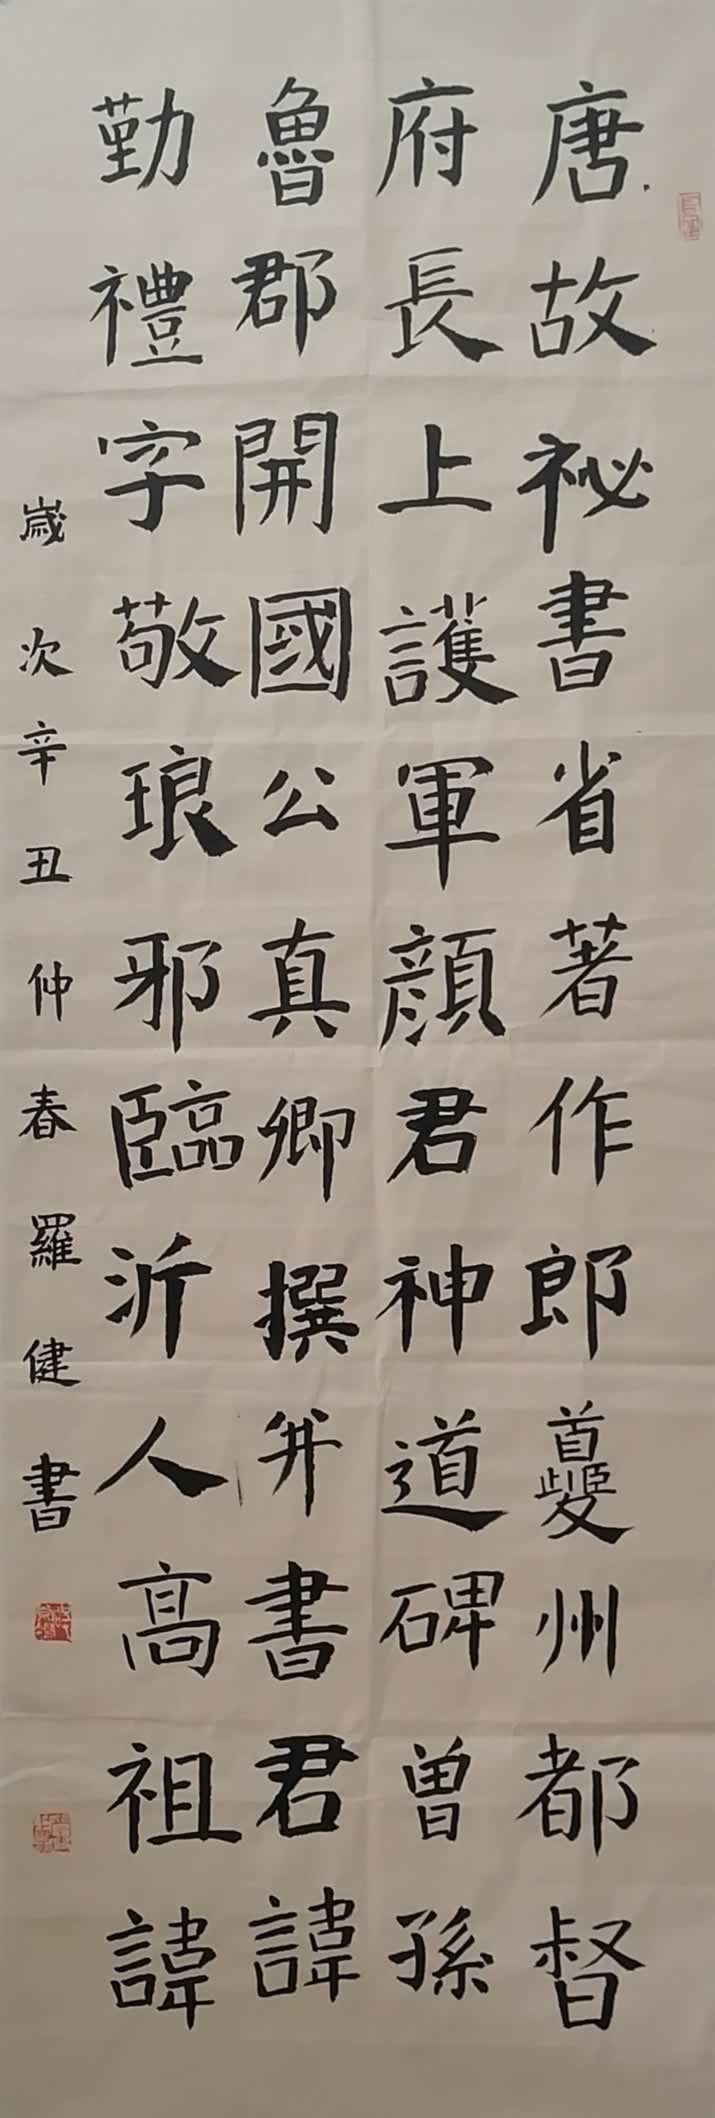 唐故祕書省著作郎夔州都督
府長上護軍顏君神道碑曾孫
魯郡開國公真卿撰并書君諱
勤禮字敬琅邪臨沂人高祖諱
歲次辛丑仲春羅健書